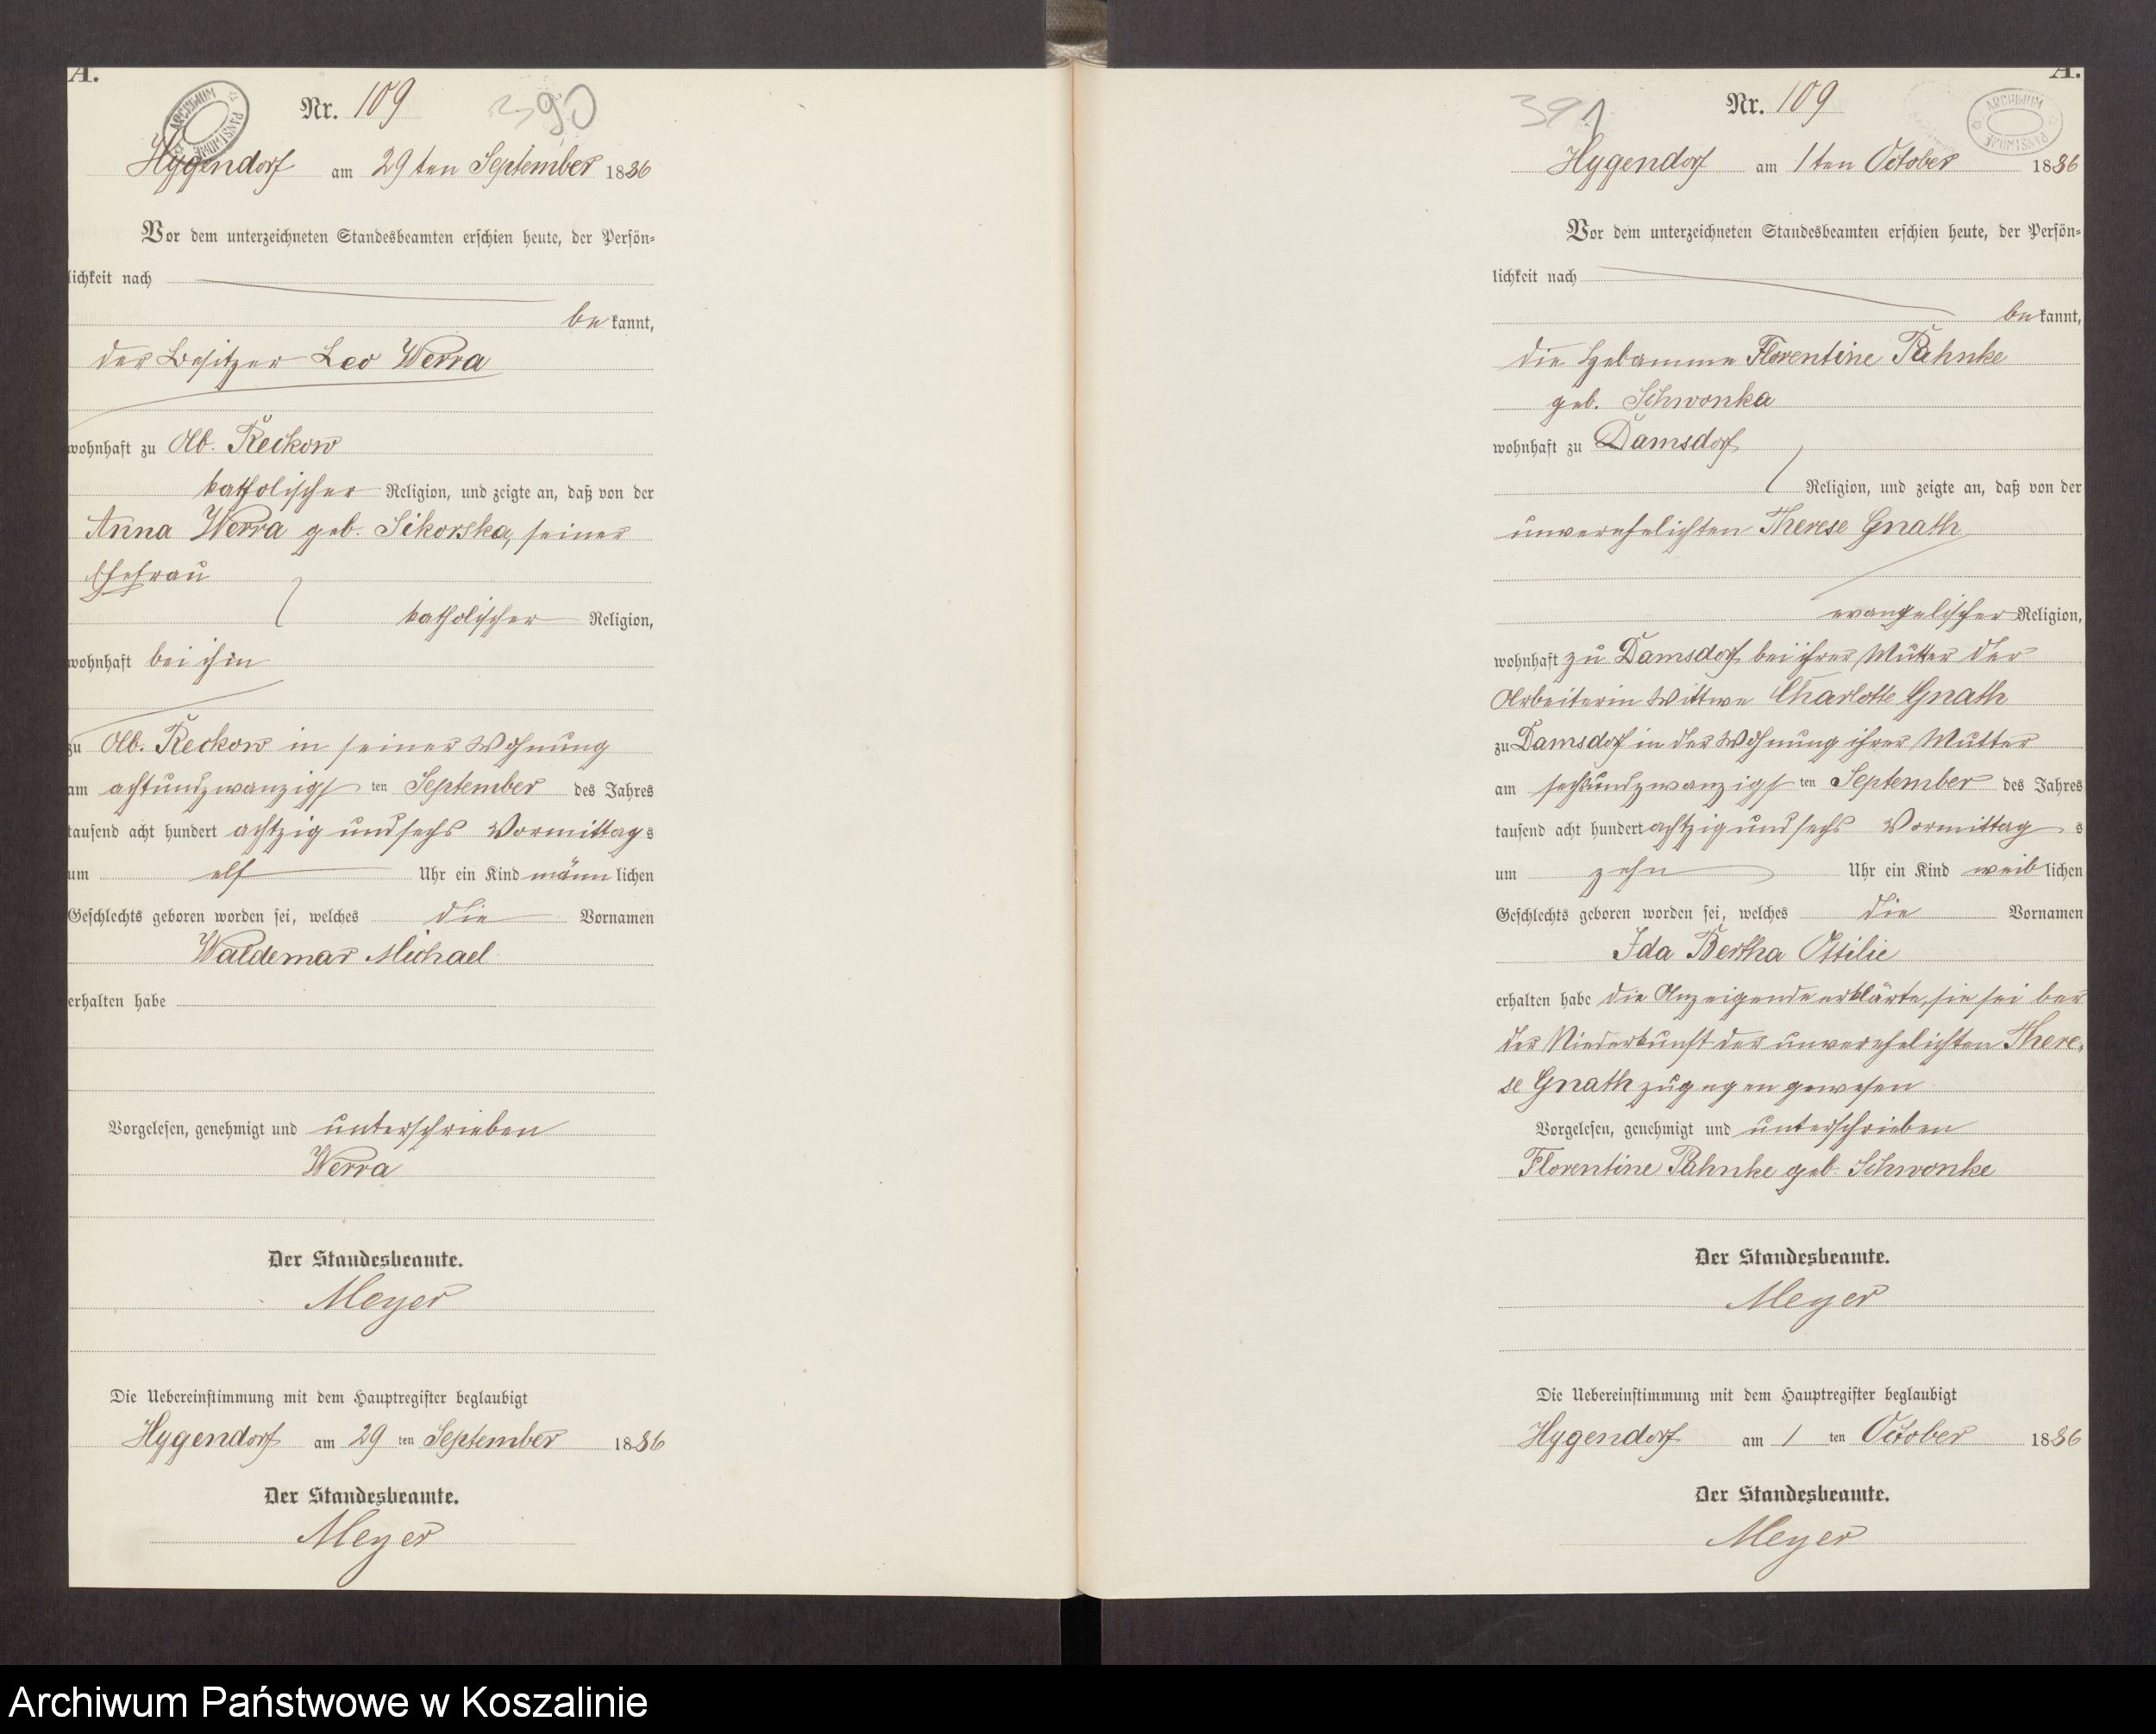 A.
ARCHIWUM PAŃSTWOWE
Nr. 109
390
Hygendorf am 29ten September 1886
Vor dem unterzeichneten Standesbeamten erschien heute, der Persön=
lichkeit nach
be kannt,
der Besitzer Leo Werra
wohnhaft zu Alb. Reckow
katholischer Religion, und zeigte an, daß von der
Anna Werra geb. Sikorska, seiner
Ehefrau
katholischer Religion,
wohnhaft bei ihm
zu Alb. Reckow in seiner Wohnung
am achtundzwanzigsten September des Jahres
tausend acht hundert achtzig und sechs Vormittags
um elf Uhr ein Kind männlichen
Geschlechts geboren worden sei, welches die Vornamen
Waldemar Michael
erhalten habe
Vorgelesen, genehmigt und unterschrieben
Werra
Der Standesbeamte.
Meyer
Die Uebereinstimmung mit dem Hauptregister beglaubigt
Hygendorf am 29 ten September 1886
Der Standesbeamte.
Meyer
A.
391
Nr. 109
ARCHIWUM PAŃSTWOWE
Hygendorf am 1ten October 1886
Vor dem unterzeichneten Standesbeamten erschien heute, der Persön=
lichkeit nach
be kannt,
die Hebamme Florentine Pahnke
geb. Schwonka
wohnhaft zu Damsdorf
Religion, und zeigte an, daß von der
unverehelichten Therese Gnath
evangelischer Religion,
wohnhaft zu Damsdorf bei ihrer Mutter der
Arbeiterin Wittwe Charlotte Gnath
zu Damsdorf in der Wohnung ihrer Mutter
am sechsundzwanzigsten September des Jahres
tausend acht hundert achtzig und sechs Vormittags
um zehn Uhr ein Kind weiblichen
Geschlechts geboren worden sei, welches die Vornamen
Ida Bertha Ottilie
erhalten habe die Anzeigende erklärte, sie sei bei
der Niederkunft der unverehelichten There=
se Gnath zugegen gewesen
Vorgelesen, genehmigt und unterschrieben
Florentine Pahnke geb. Schwonke
Der Standesbeamte.
Meyer
Die Uebereinstimmung mit dem Hauptregister beglaubigt
Hygendorf am 1 ten October 1886
Der Standesbeamte.
Meyer
Archiwum Państwowe w Koszalinie